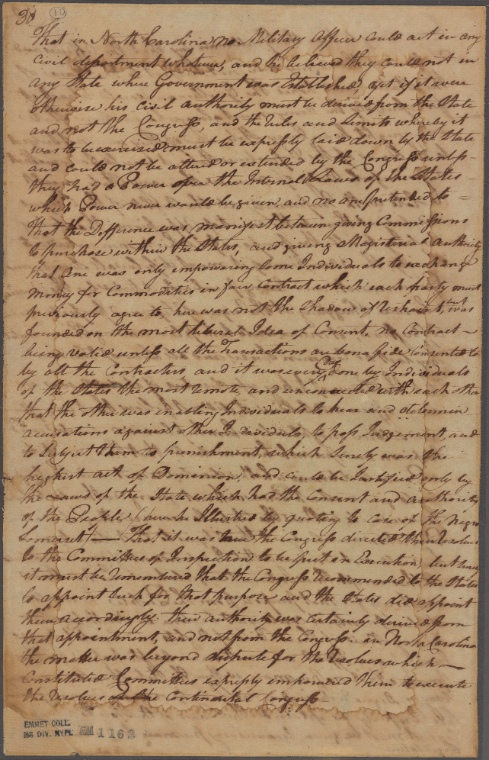 38 (19)
That in North Carolina no Military Officer could act in any
civil department whatever, and he believed they could not in
any State where Government was Established, yet if it were
otherwise his civil Authority must be derived from the State
and not the Congress, and the rules and Limits whereby it
was to be exercised must be expressly laid down by the State
and could not be altered or extended by the Congress unless
they had a Power over the Internal Laws of the States
which Power never would be given and no one pretended to =
That the Difference was manifest between giving Commissions
to purchase within the States, and giving Magisterial Authority
that one was only empowering some Individuals to exchange
money for Commodities in fair contract which each party must
previously agree to, here was not the Shadow of restraint, 'twas
founded on the most liberal Idea of Consent, no Contract
being valid unless all the Transactions are bona fide consented to
by all the Contractors, and it was every day done by Individuals
of the States the most remote and unconnected with each other
that the other was enabling Individuals to hear and determin
accusations against other Individuals, to pass Judgement, and
to Subject them to punishment, which Surely was the
highest act of Dominion, and could be Justified only by
the Laws of the State which had the Consent and Authority
of the People (which Illustrated by quoting the case of the Negro
Somerset) — That it was true the Congress directed their Resolves
to the Committees of Inspection to be put in Execution, but
it must be remembered that the Congress recommended to the States
to appoint such for that purpose and the States did appoint
them accordingly. their authority was certainly derived from
that appointment, and not from the Congress. in North Carolina
the matter was beyond dispute for the Resolves which
Constituted Committees expressly empowered them to execute
the Resolves of the Continental Congress
EMMET COLL.
MS DIV. NYPL EM 1162